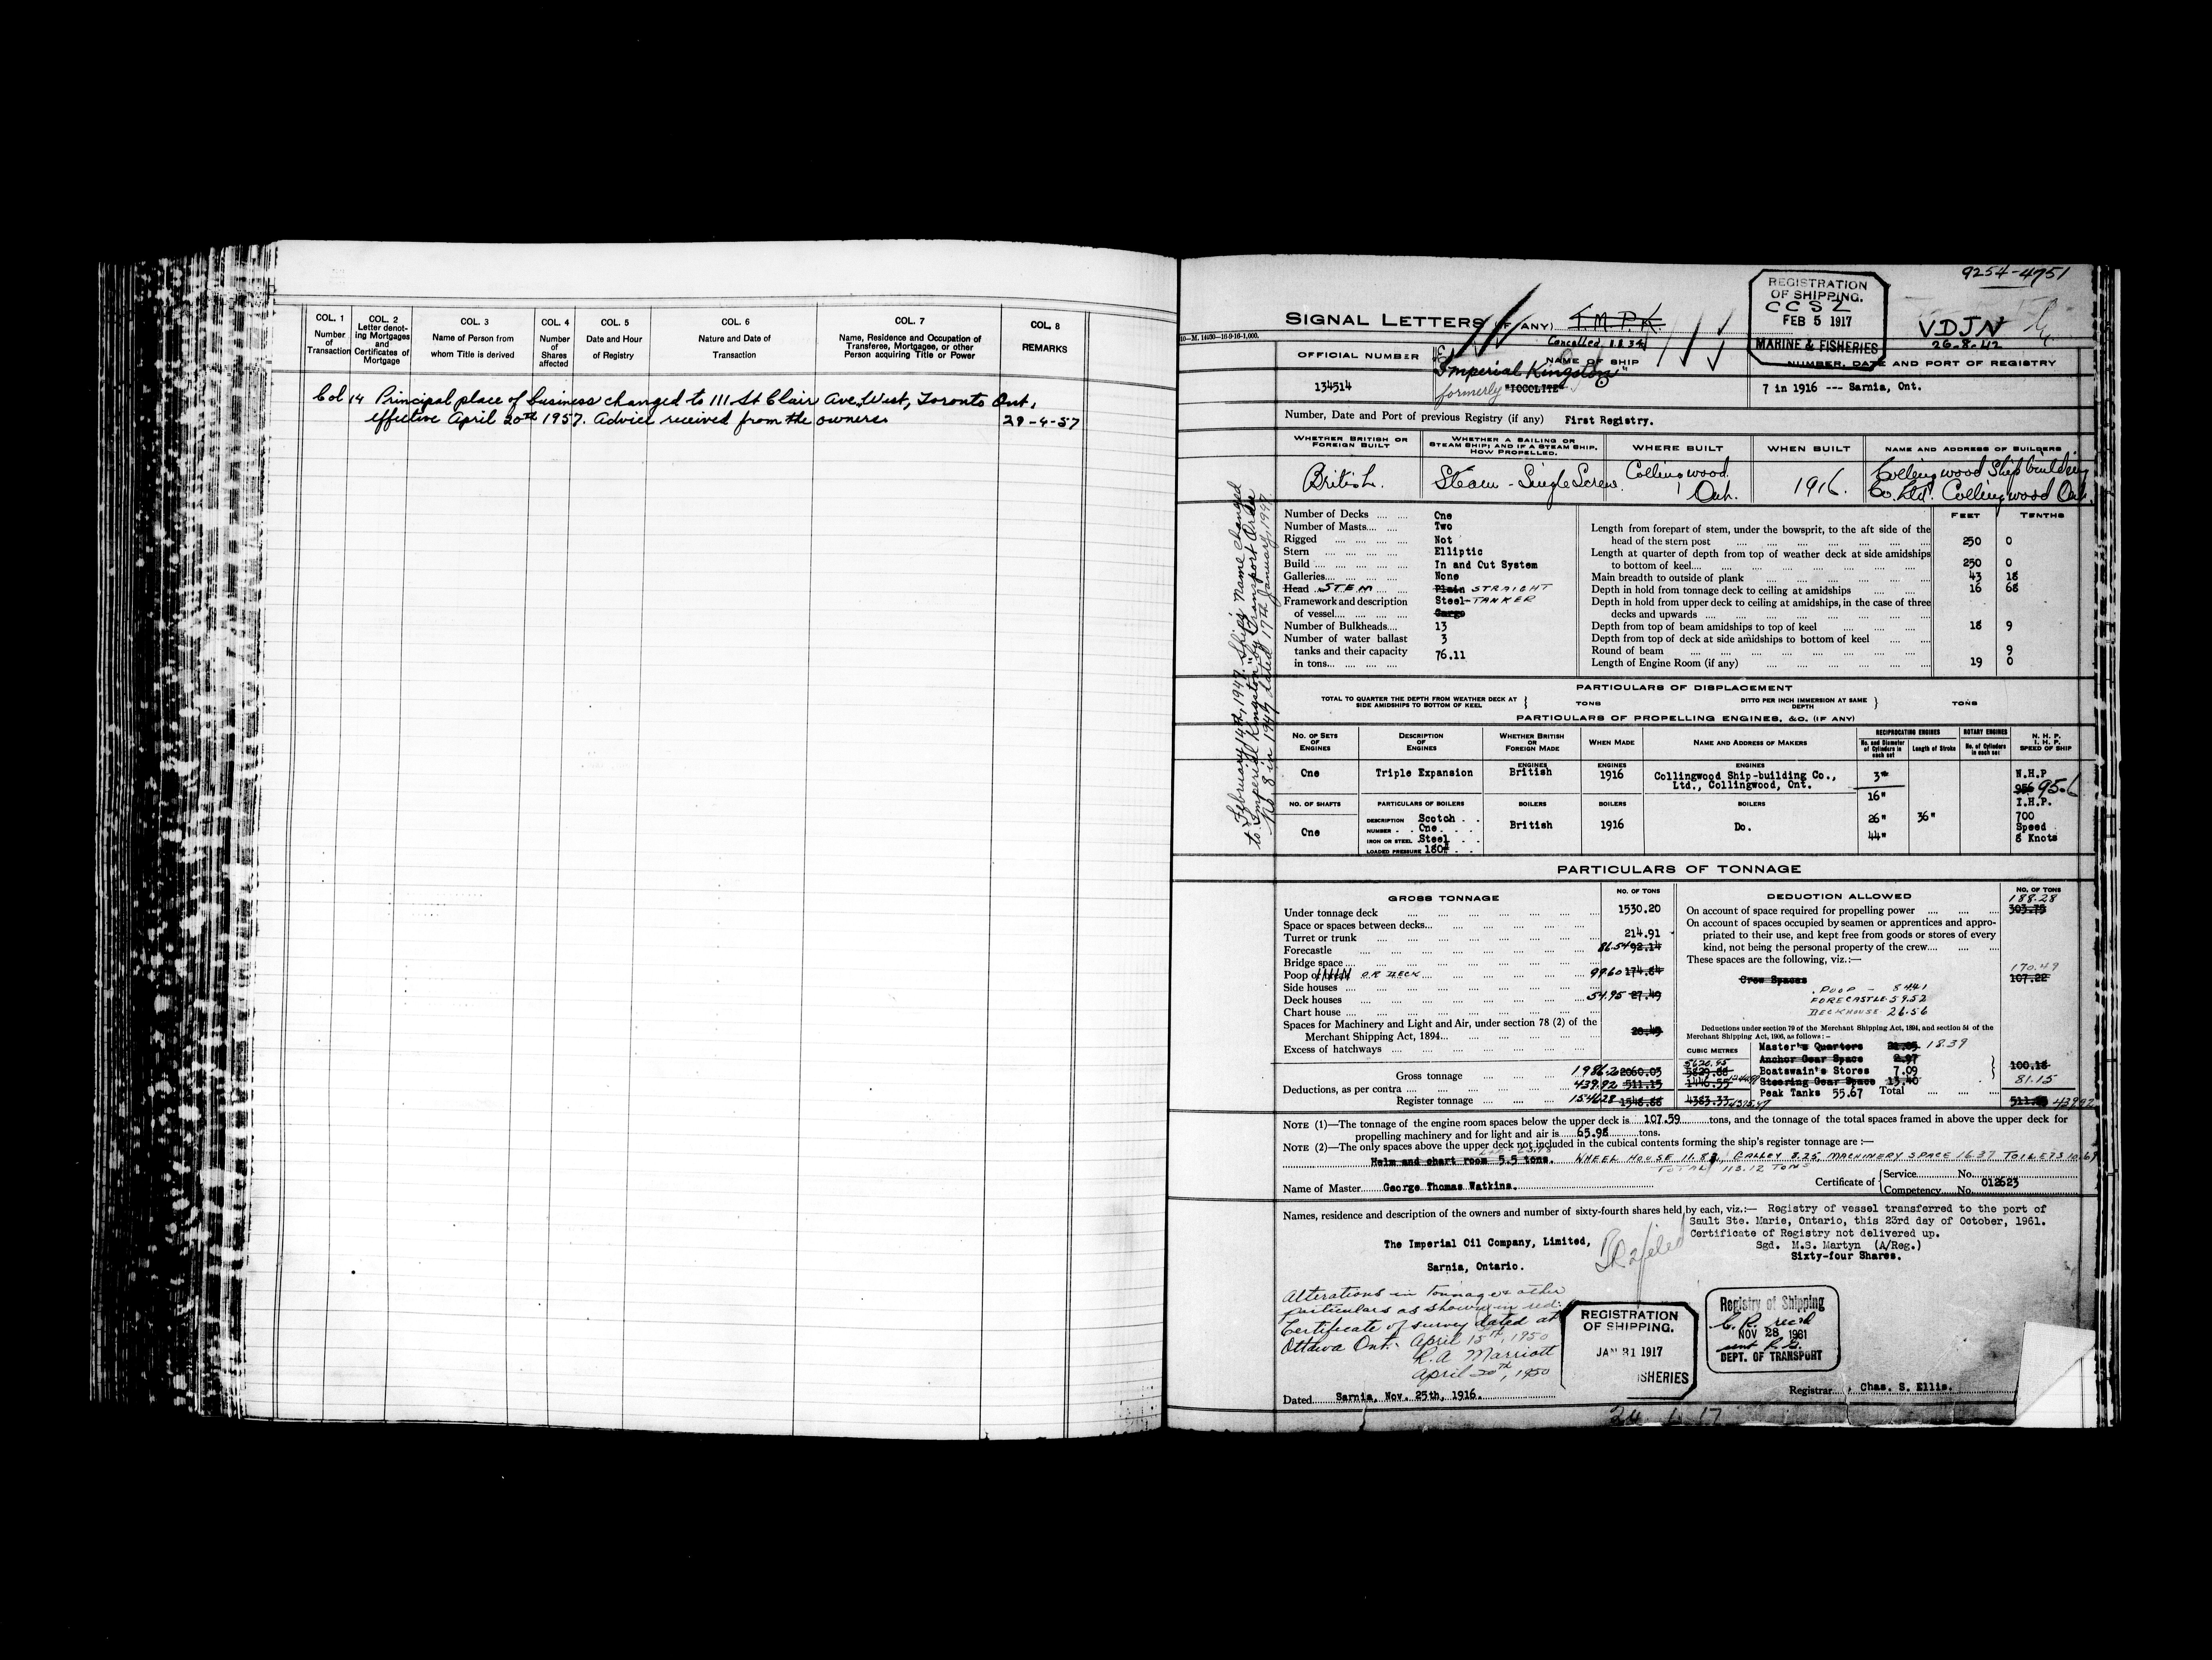 COL. 1 Number of Transaction
COL. 2 Letter denoting Mortgages and Certificates of Mortgage
COL. 3 Name of Person from whom Title is derived
COL. 4 Number of Shares affected
COL. 5 Date and Hour of Registry
COL. 6 Nature and Date of Transaction
COL. 7 Name, Residence and Occupation of Transferee, Mortgagee, or other Person acquiring Title or Power
COL. 8 REMARKS
Col 14 Principal place of business changed to 111 St Clair Ave, West, Toronto Ont,
effective April 20th 1957. Advice received from the owners 29-4-57
9254-4751
REGISTRATION
OF SHIPPING.
CCSZ
FEB 5 1917
MARINE & FISHERIES
SIGNAL LETTERS (IF ANY) T.M.P.K.
Cancelled, 1.8.34
VDJN
26-8-42
10-M. 14630-16-9-16-1,000.
OFFICIAL NUMBER
NAME OF SHIP
NUMBER, DATE AND PORT OF REGISTRY
134514
Imperial Kingston"
formerly "IOCOLITE"
7 in 1916 --- Sarnia, Ont.
Number, Date and Port of previous Registry (if any) First Registry.
WHETHER BRITISH OR FOREIGN BUILT
WHETHER A SAILING OR STEAM SHIP; AND IF A STEAM SHIP, HOW PROPELLED.
WHERE BUILT
WHEN BUILT
NAME AND ADDRESS OF BUILDERS
British.
Steam - Single Screw.
Collingwood Ont.
1916.
Collingwood Shipbuilding
Co. Ltd. Collingwood Ont.
February 14th, 1947. Ship's Name changed
to "Imperial Kingston" by Transport Order
No. 8 in 1947, dated 17th January, 1947
Number of Decks .... .... One
Number of Masts.... .... Two
Rigged .... .... .... .... Not
Stern .... .... .... .... Elliptic
Build .... .... .... .... In and Out System
Galleries.... .... .... .... None
Head STEM .... .... Plain STRAIGHT
Framework and description Steel-TANKER
of vessel.... .... .... Cargo
Number of Bulkheads.... 13
Number of water ballast 3
tanks and their capacity
in tons... .... .... .... 76.11
FEET TENTHS
Length from forepart of stem, under the bowsprit, to the aft side of the
head of the stern post 250 0
Length at quarter of depth from top of weather deck at side amidships
to bottom of keel.... 250 0
Main breadth to outside of plank 43 18
Depth in hold from tonnage deck to ceiling at amidships 16 68
Depth in hold from upper deck to ceiling at amidships, in the case of three
decks and upwards
Depth from top of beam amidships to top of keel 18 9
Depth from top of deck at side amidships to bottom of keel
Round of beam 9
Length of Engine Room (if any) 19 0
PARTICULARS OF DISPLACEMENT
TOTAL TO QUARTER THE DEPTH FROM WEATHER DECK AT SIDE AMIDSHIPS TO BOTTOM OF KEEL } TONS
DITTO PER INCH IMMERSION AT SAME DEPTH } TONS
PARTICULARS OF PROPELLING ENGINES, &C. (IF ANY)
NO. OF SETS OF ENGINES
DESCRIPTION OF ENGINES
WHETHER BRITISH OR FOREIGN MADE
WHEN MADE
NAME AND ADDRESS OF MAKERS
RECIPROCATING ENGINES
No. and Diameter of Cylinders in each set
Length of Stroke
ROTARY ENGINES
No. of Cylinders in each set
N. H. P. I. H. P. SPEED OF SHIP
ENGINES ENGINES ENGINES
One Triple Expansion British 1916 Collingwood Ship-building Co.,
Ltd., Collingwood, Ont.
3"
N.H.P
956 95.6
NO. OF SHAFTS PARTICULARS OF BOILERS BOILERS BOILERS BOILERS
16"
I.H.P.
One
DESCRIPTION Scotch
NUMBER One
IRON OR STEEL Steel
LOADED PRESSURE 180#
British 1916 Do.
26" 36"
44"
700
Speed
8 Knots
PARTICULARS OF TONNAGE
GROSS TONNAGE
NO. OF TONS
Under tonnage deck 1530.20
Space or spaces between decks...
Turret or trunk 214.91
Forecastle 86.54 92.14
Bridge space
Poop or break OR DECK 99.60 174.84
Side houses
Deck houses 54.95 27.49
Chart house
Spaces for Machinery and Light and Air, under section 78 (2) of the
Merchant Shipping Act, 1894... 20.49
Excess of hatchways
CUBIC METRES
Gross tonnage 1986.2 2060.03 5620.95 5829.88
Deductions, as per contra 439.92 511.15 1446.55
Register tonnage 1546.28 1548.88 4383.33
DEDUCTION ALLOWED
NO. OF TONS
On account of space required for propelling power 188.28 303.75
On account of spaces occupied by seamen or apprentices and appro-
priated to their use, and kept free from goods or stores of every
kind, not being the personal property of the crew....
These spaces are the following, viz.:—
Crew Spaces 170.49 107.22
POOP - 84.41
FORECASTLE. 59.52
DECKHOUSE. 26.56
Deductions under section 79 of the Merchant Shipping Act, 1894, and section 54 of the
Merchant Shipping Act, 1906, as follows:—
Master's Quarters 18.39
Anchor Gear Space 2.97
Boatswain's Stores 7.09 100.18
Steering Gear Space 13.40 81.15
Peak Tanks 55.67 Total 439.92
NOTE (1)—The tonnage of the engine room spaces below the upper deck is 107.59 tons, and the tonnage of the total spaces framed in above the upper deck for
propelling machinery and for light and air is 65.98 tons.
NOTE (2)—The only spaces above the upper deck not included in the cubical contents forming the ship's register tonnage are :—
Helm and chart room 5.5 tons. WHEEL HOUSE 11.83, GALLEY 8.25 MACHINERY SPACE 16.37 TOILETS 10.69
TOTAL 113.12 TONS
Name of Master George Thomas Watkins.
Certificate of { Service No.
Competency No. 012623
Names, residence and description of the owners and number of sixty-fourth shares held by each, viz.:— Registry of vessel transferred to the port of
Sault Ste. Marie, Ontario, this 23rd day of October, 1961.
Certificate of Registry not delivered up.
Sgd. M.S. Martyn (A/Reg.)
The Imperial Oil Company, Limited,
Sarnia, Ontario.
Sixty-four Shares.
Alterations in tonnage & other
particulars as shown in red:
Certificate of survey dated at
Ottawa Ont. April 15th, 1950
R.A. Marriott
April 20th, 1950
REGISTRATION
OF SHIPPING.
JAN 31 1917
ISHERIES
Registry of Shipping
C. R. rec'd
NOV 28 1961
DEPT. OF TRANSPORT
Dated Sarnia, Nov. 25th, 1916.
Registrar Chas. S. Ellis.